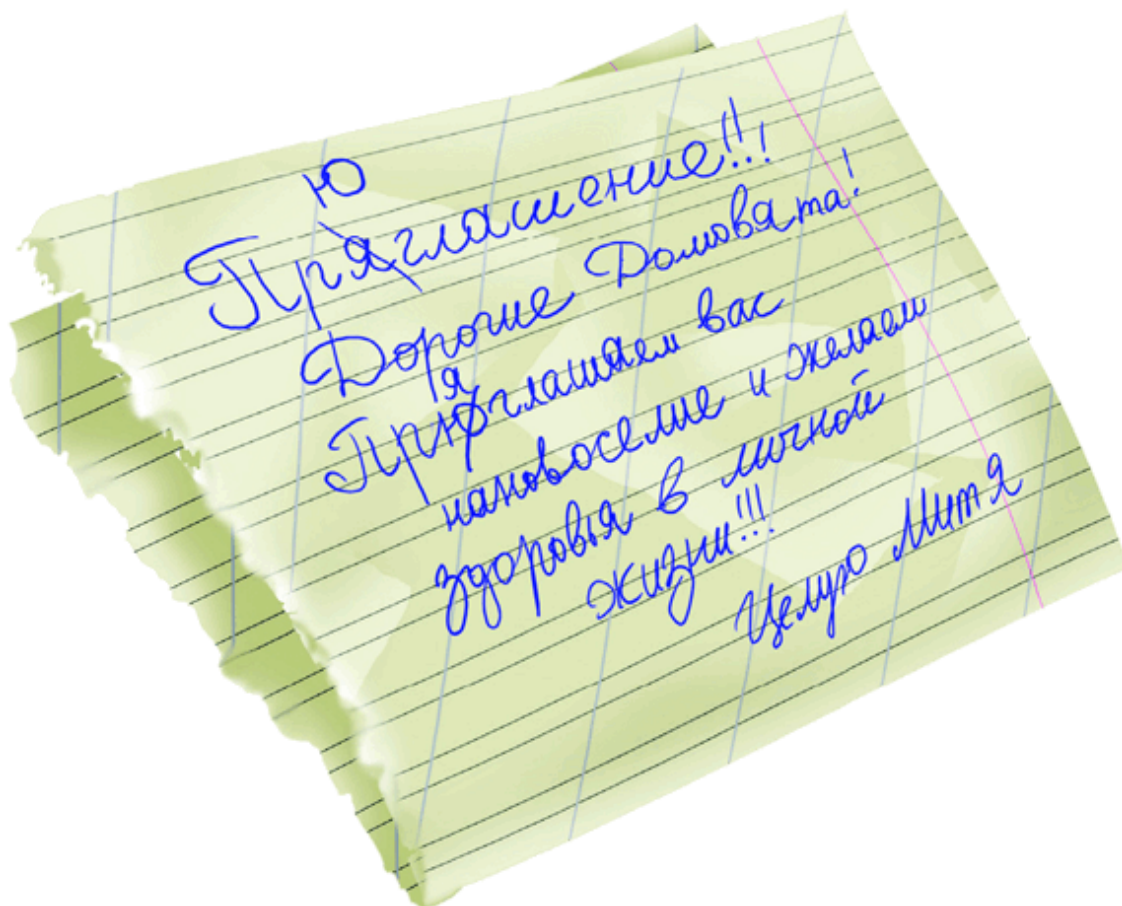 Прюглашение!!!
Дорогие Домовята!
Пряглашаем вас
нановоселие и желаем
здоровья в личной
жизни!!!
Целую Митя